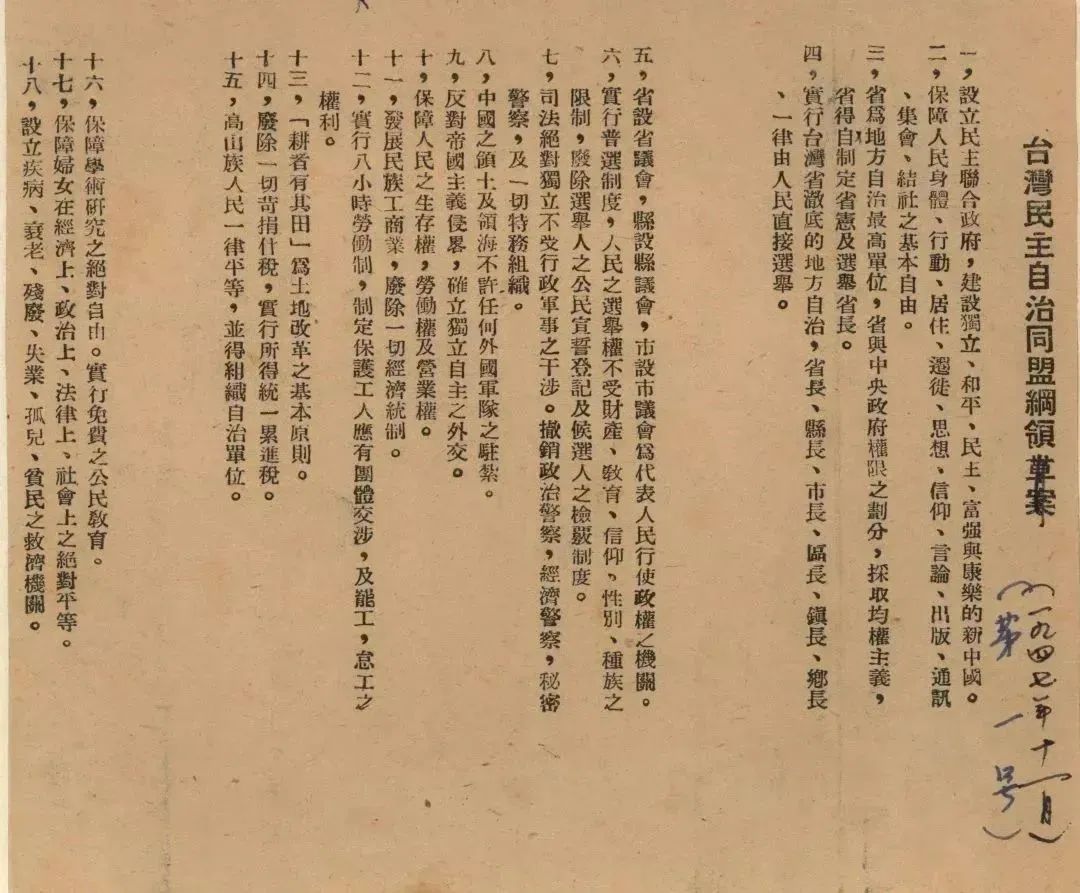 台灣民主自治同盟綱領草案
(一九四七年十一月)
(第一号)
一，設立民主聯合政府，建設獨立、和平、民主、富强與康樂的新中國。
二，保障人民身體、行動、居住、遷徙、思想、信仰、言論、出版、通訊
、集會、結社之基本自由。
三，省爲地方自治最高單位，省與中央政府權限之劃分，採取均權主義，
省得自制定省憲及選舉省長。
四，實行台灣省澈底的地方自治，省長、縣長、市長、區長、鎭長、鄕長
、一律由人民直接選舉。
五，省設省議會，縣設縣議會，市設市議會爲代表人民行使政權之機關。
六，實行普選制度，人民之選舉權不受財產、敎育、信仰、性別、種族之
限制，廢除選舉人之公民宣誓登記及候選人之檢覈制度。
七，司法絕對獨立不受行政軍事之干涉。撤銷政治警察，經濟警察，秘密
警察，及一切特務組織。
八，中國之領土及領海不許任何外國軍隊之駐紮。
九，反對帝國主義侵畧，確立獨立自主之外交。
十，保障人民之生存權，勞働權及營業權。
十一，發展民族工商業，廢除一切經濟統制。
十二，實行八小時勞働制，制定保護工人應有團體交涉，及罷工，怠工之
權利。
十三，「耕者有其田」爲土地改革之基本原則。
十四，廢除一切苛捐什稅，實行所得統一累進稅。
十五，高山族人民一律平等，並得組織自治單位。
十六，保障學術研究之絕對自由。實行免費之公民敎育。
十七，保障婦女在經濟上、政治上、法律上、社會上之絕對平等。
十八，設立疾病、衰老、殘廢、失業、孤兒、貧民之救濟機關。